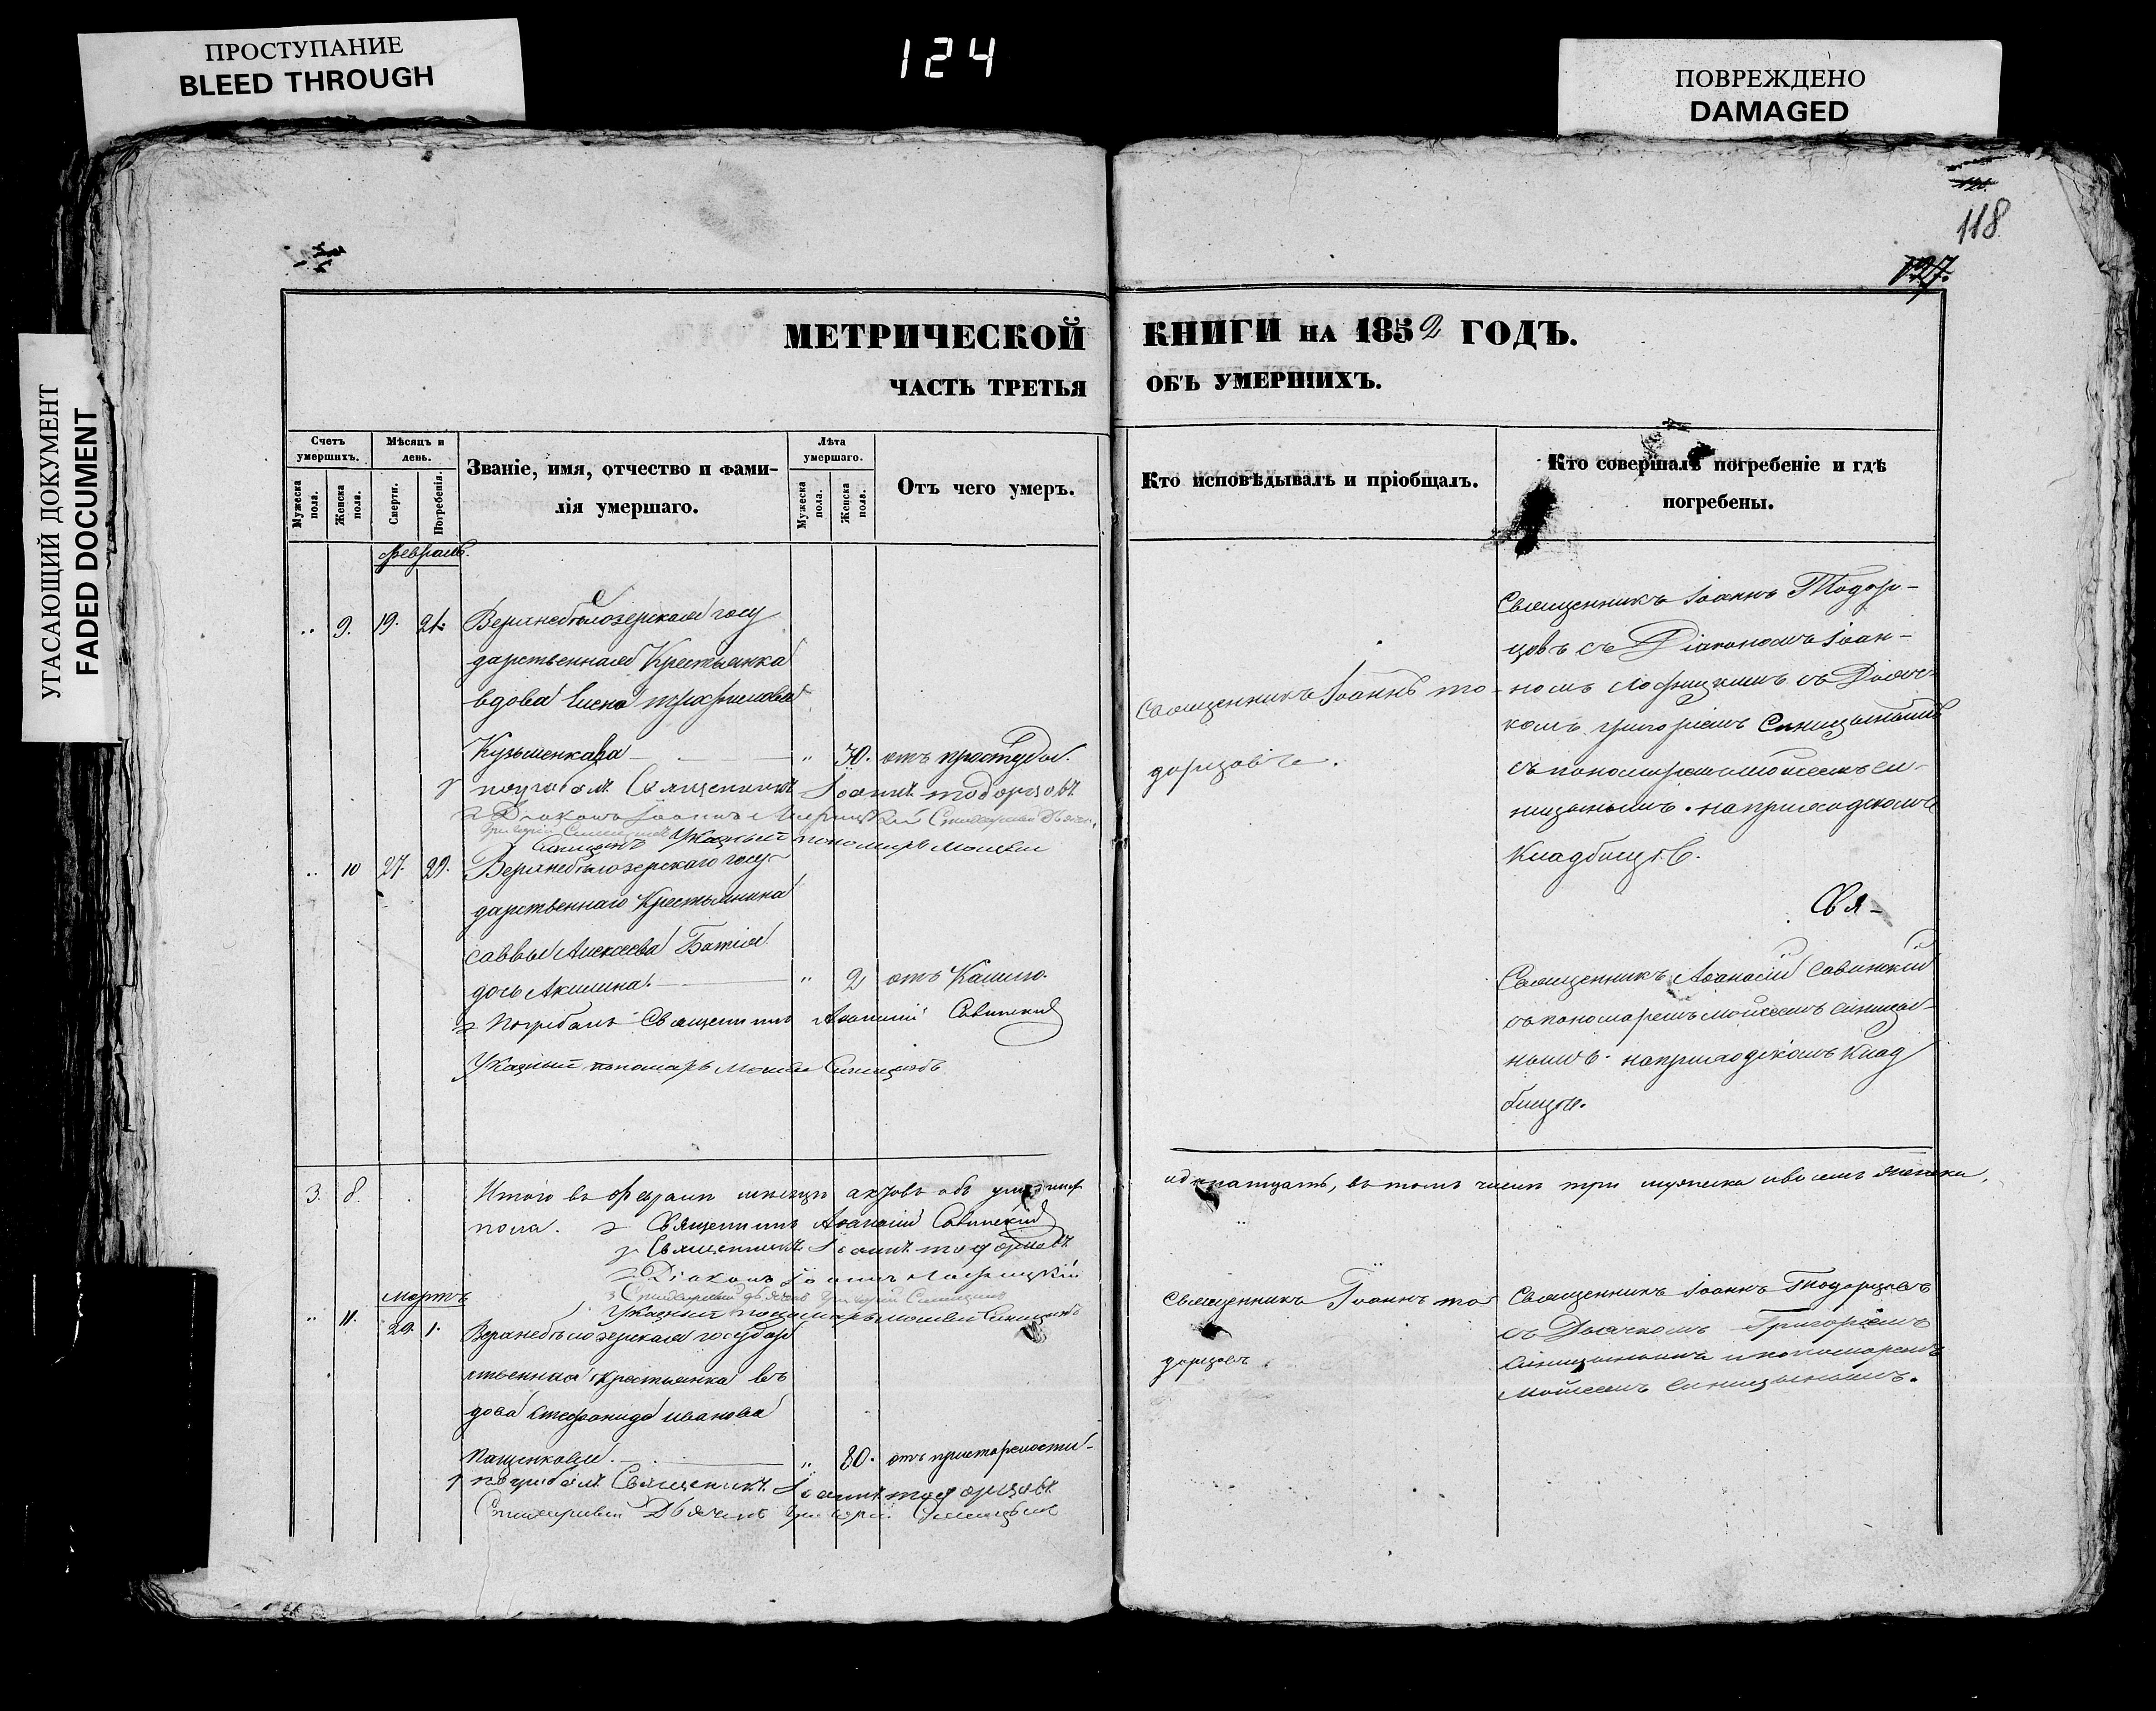 ПРОСТУПАНИЕ
BLEED THROUGH
124
ПОВРЕЖДЕНО
DAMAGED
УГАСАЮЩИЙ ДОКУМЕНТ
FADED DOCUMENT
118
МЕТРИЧЕСКОЙ КНИГИ НА 1852 ГОДЪ.
ЧАСТЬ ТРЕТЬЯ ОБЪ УМЕРШИХЪ.
Счетъ умершихъ.
Мужеска пола.
Женска пола.
Мѣсяцъ и день.
Смерти.
Погребенія.
Званіе, имя, отчество и фами-
лія умершаго.
Лѣта умершаго.
Мужеска пола.
Женска пола.
Отъ чего умеръ.
Кто исповѣдывалъ и пріобщалъ.
Кто совершалъ погребеніе и гдѣ
погребены.
Февраль.
„ 9. 19. 21. Верхнебѣлозерская госу
дарственная Крестьянка
вдова Елена
Кузьменкова „ 70. отъ простуды.
Священникъ Іоаннъ То-
дорцовъ.
Священникъ Іоаннъ Тодор-
цовъ съ Діакономъ Іоан-
номъ съ Дьяч-
комъ Григоріемъ Синицынымъ
съ пономаремъ Моисеемъ Си-
ницынымъ. на приходскомъ
Кладбищѣ.
погребалъ Священникъ Іоаннъ Тодорцовъ
Діаконъ Іоаннъ Стихарный Дьячекъ
Григорій Синицынъ Указный пономарь Моисей
Синицынъ
„ 10 27. 29. Верхнебѣлозерскаго госу-
дарственнаго Крестьянина
Саввы Алексеева
дочь Акилина. „ 2 отъ Кашлю.
Свя-
Священникъ Афанасій Савинскій
съ пономаремъ Моисеемъ Синицы-
нымъ. на приходскомъ Клад
бищѣ.
Погребалъ Священникъ Афанасій Савинскій
Указный пономарь Моисей Синицынъ
3. 8. Итого въ Февралѣ мѣсяцѣ актовъ объ умершихъ
одинатцать, въ томъ числѣ три мужеска и восемъ женска
пола. Священникъ Афанасій Савинскій
Священникъ Іоаннъ Тодорцовъ
Діаконъ Іоаннъ
Стихарный Дьячекъ Григорій Синицынъ
Указный пономарь Моисей Синицынъ
Мартъ
„ 11. 29. 1. Верхнебѣлозерская государ
ственная крестьянка в
дова Стефанида Иванова
Пащенкова. „ 80. отъ престарелости.
Священникъ Іоаннъ То
дорцовъ
Священникъ Іоаннъ Тодорцовъ
съ Дьячкомъ Григоріемъ
Синицынымъ и пономаремъ
Моисеемъ Синицынымъ.
погребалъ Священникъ Іоаннъ Тодорцовъ
Стихарный Дьячекъ Григорій Синицынъ